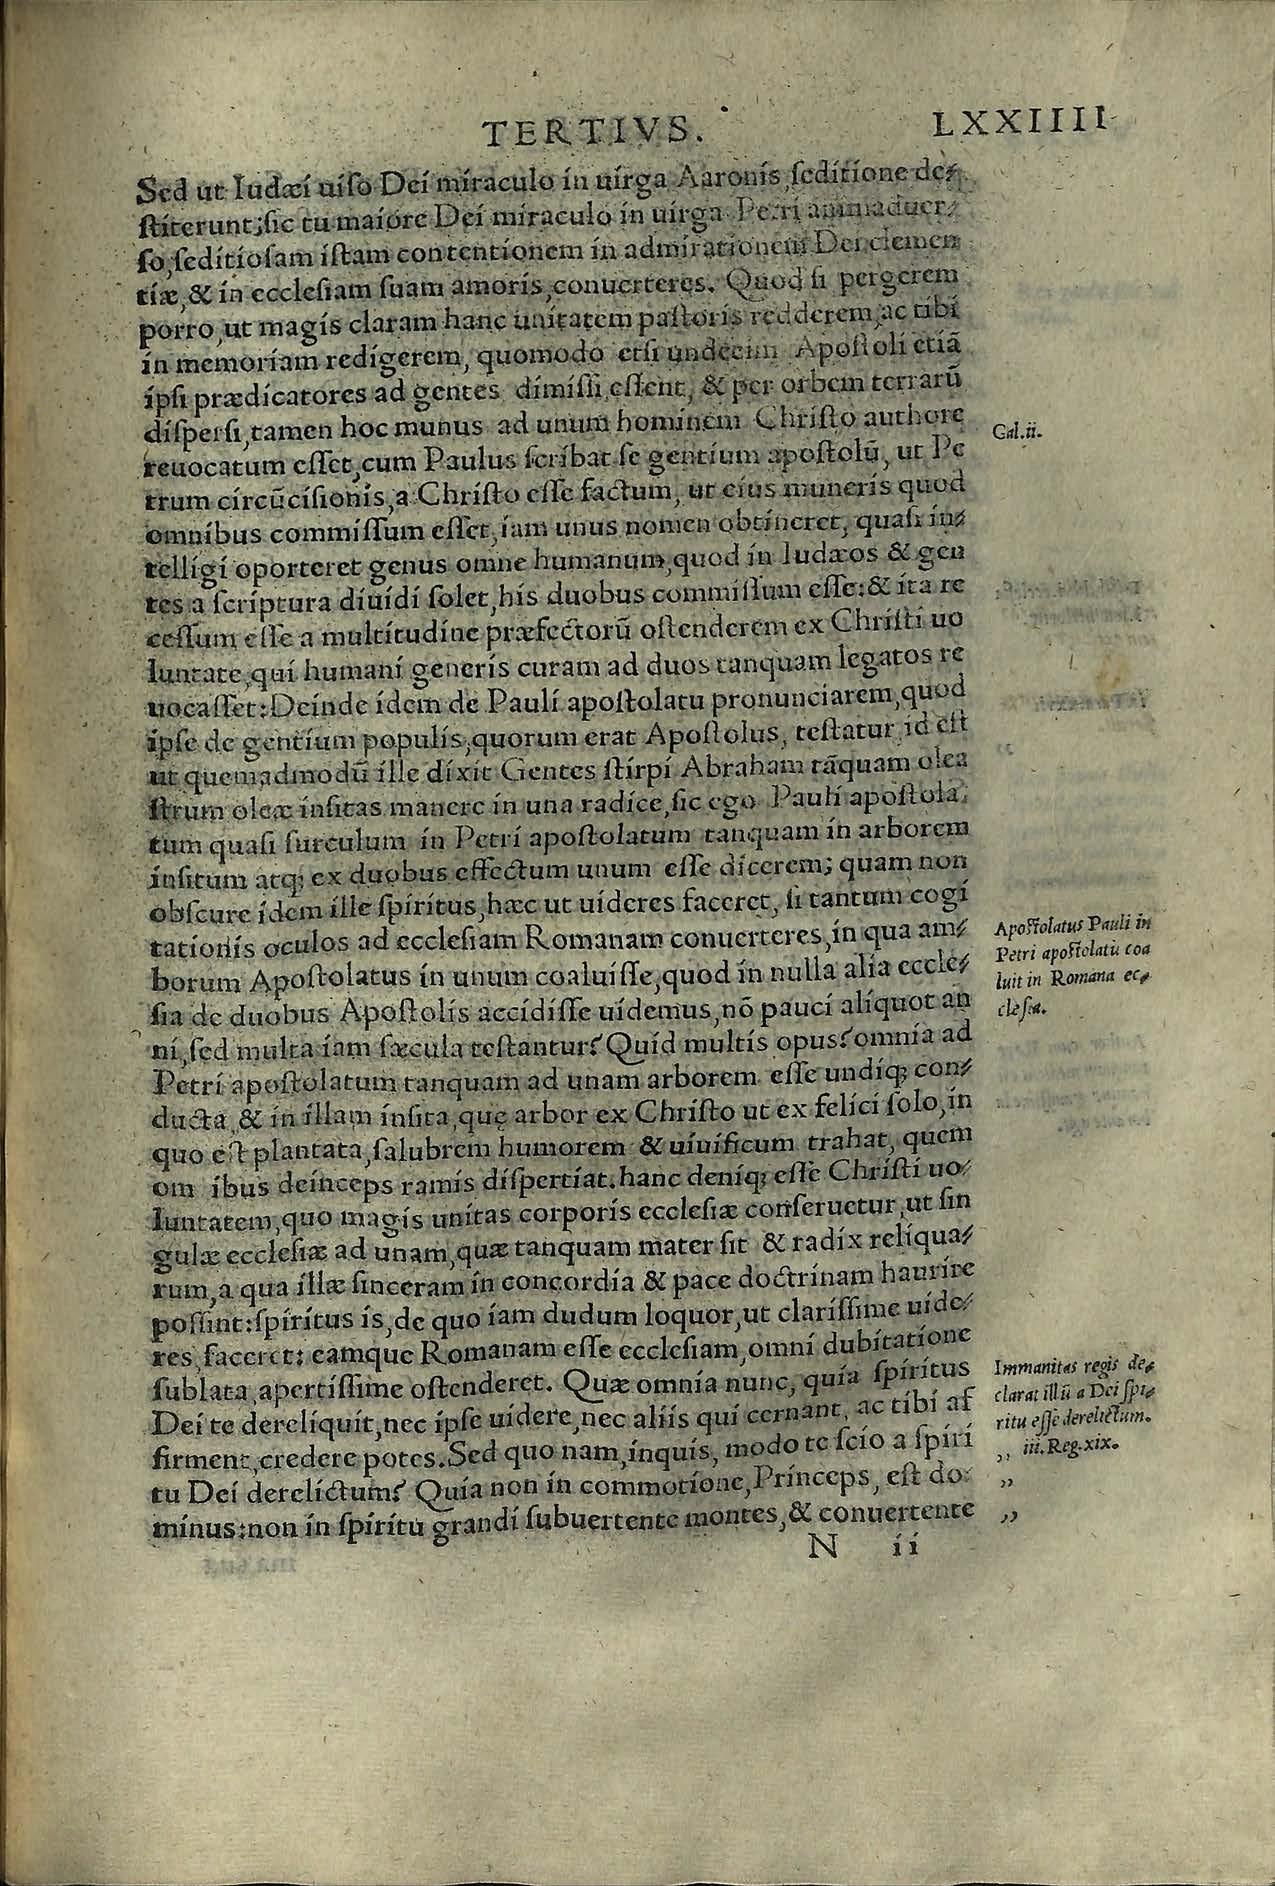 TERTIVS. LXXIIII
Sed ut Iudæi uiſo Dei miraculo in uirga Aaronis, ſeditione de-
ſtiterunt; ſic tu maiore Dei miraculo in uirga Petri animaduer-
ſo, ſeditioſam iſtam contentionem in admirationem Dei clemen
tiæ, & in eccleſiam ſuam amoris, conuerteres. Quod ſi pergerem
porro, ut magis claram hanc unitatem paſtoris redderem, ac tibi
in memoriam redigerem, quomodo etſi undecim Apoſtoli etiã
ipſi prædicatores ad gentes dimiſſi, eſſent, & per orbem terrarũ
diſperſi, tamen hoc munus ad unum hominem Chriſto authore
reuocatum eſſet, cum Paulus ſcribat ſe gentium apoſtolũ, ut Pe
trum circũciſionis, a Chriſto eſſe factum, ut eius muneris quod
omnibus commiſſum eſſet, iam unus nomen obtineret, quaſi in-
telligi oporteret genus omne humanum, quod in Iudæos & gen
tes a ſcriptura diuidi ſolet, his duobus commiſſum eſſe: & ita re
ceſſum eſſe a multitudine præfectorũ oſtenderem ex Chriſti uo
luntate, qui humani generis curam ad duos tanquam legatos re
uocaſſet: Deinde idem de Pauli apoſtolatu pronunciarem, quod
ipſe de gentium populis, quorum erat Apoſtolus, teſtatur, id eſt
ut quemadmodũ ille dixit Gentes ſtirpi Abraham tãquam olea
ſtrum oleæ inſitas manere in una radice, ſic ego Pauli apoſtola
tum quaſi ſurculum in Petri apoſtolatum tanquam in arborem
inſitum atq; ex duobus effectum unum eſſe dicerem; quam non
obſcure idem ille ſpiritus, hæc ut uideres faceret, ſi tantum cogi
tationis oculos ad eccleſiam Romanam conuerteres, in qua am-
borum Apoſtolatus in unum coaluiſſe, quod in nulla alia eccle-
ſia de duobus Apoſtolis accidiſſe uidemus, nõ pauci aliquot an
ni, ſed multa iam ſæcula teſtantur? Quid multis opus? omnia ad
Petri apoſtolatum tanquam ad unam arborem eſſe undiq; con-
ducta, & in illam inſita, quę arbor ex Chriſto ut ex felici ſolo, in
quo eſt plantata, ſalubrem humorem & uiuificum trahat, quem
om ibus deinceps ramis diſpertiat. hanc deniq; eſſe Chriſti uo
luntatem, quo magis unitas corporis eccleſiæ conſeruetur, ut ſin
gulæ eccleſiæ ad unam, quæ tanquam mater ſit & radix reliqua-
rum, a qua illæ ſinceram in concordia & pace doctrinam haurire
poſſint: ſpiritus is, de quo iam dudum loquor, ut clariſſime uide-
res, faceret: eamque Romanam eſſe eccleſiam, omni dubitatione
ſublata, apertiſſime oſtenderet. Quæ omnia nunc, quia ſpiritus
Dei te dereliquit, nec ipſe uidere, nec aliis qui cernant, ac tibi af
firment, credere potes. Sed quo nam, inquis, modo te ſcio a ſpiri
tu Dei derelictum? Quia non in commotione, Princeps, eſt do
minus: non in ſpiritu grandi ſubuertente montes, & conuertente
N ii
Gal.ii.
Apoſtolatus Pauli in
Petri apoſtolatu coa
luit in Romana ec-
cleſia.
Immanitas regis de-
clarat illũ a Dei ſpi-
ritu eſſe derelictum.
,, iii.Reg.xix.
,,
,,